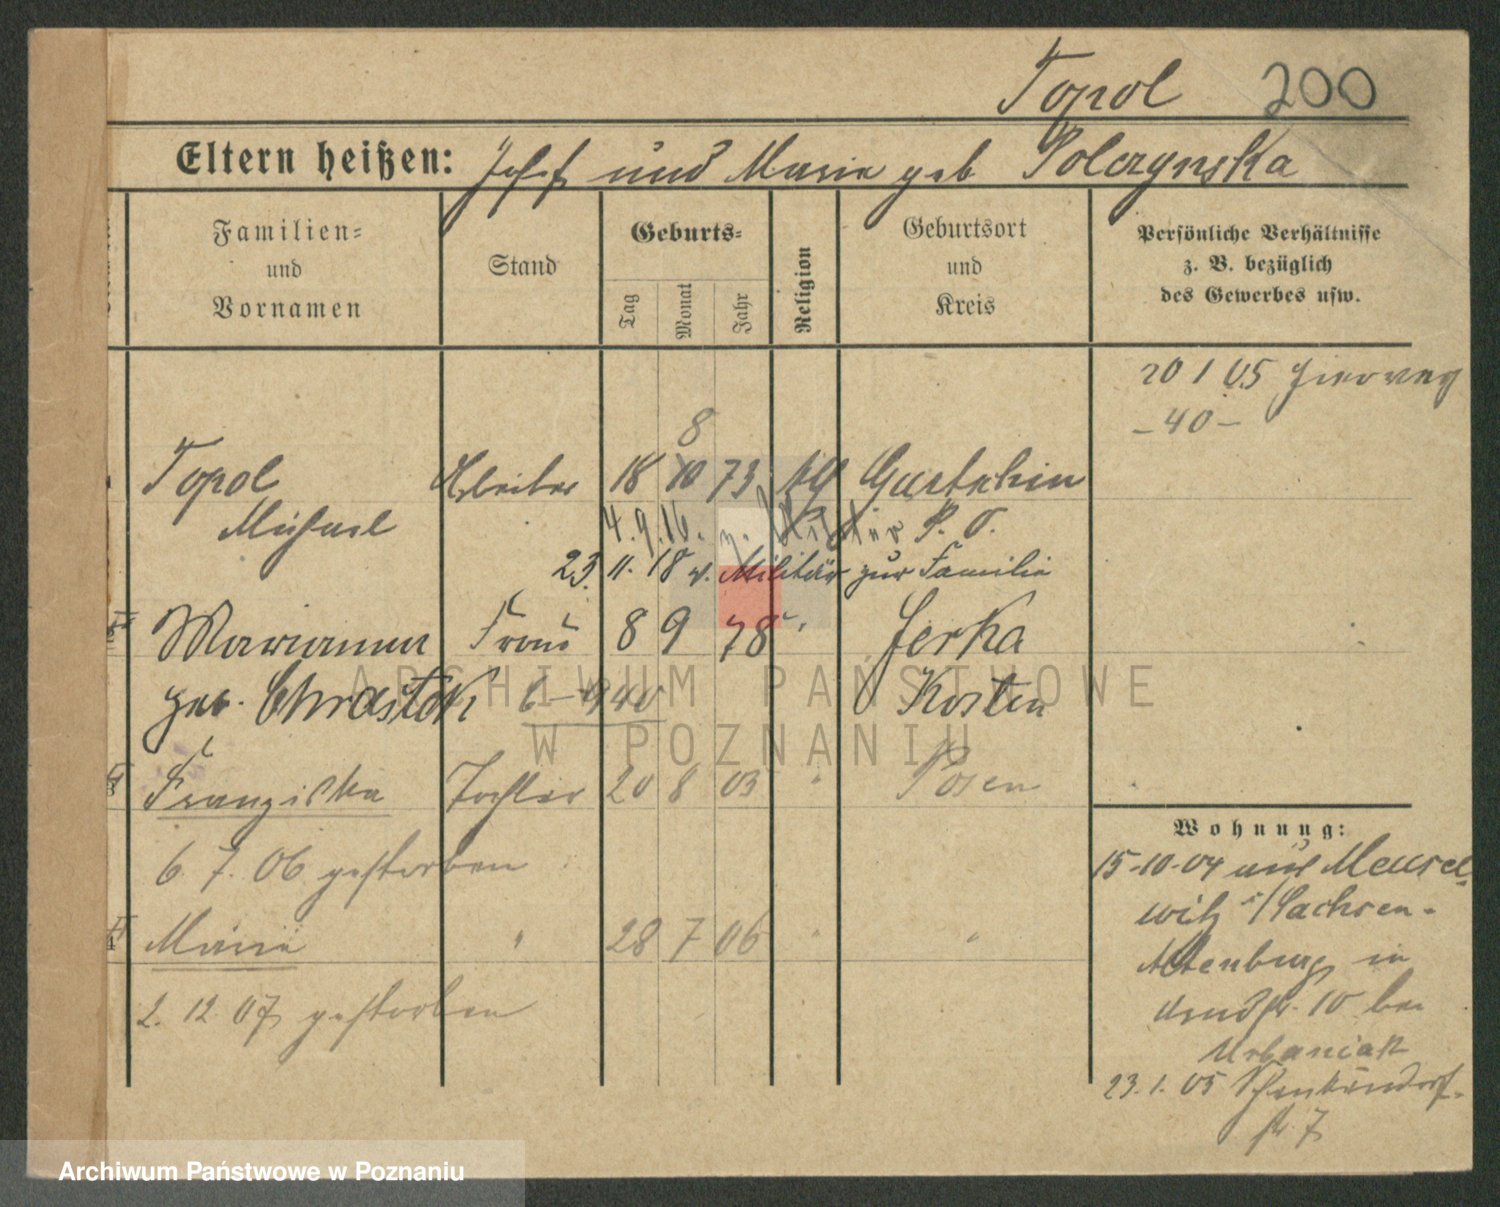 Topol 200
Eltern heißen: Josef und Marie geb Polczynska
Familien-
und
Vornamen
Stand
Geburts-
Tag
Monat
Jahr
Religion
Geburtsort
und
Kreis
Persönliche Verhältnisse
z. B. bezüglich
des Gewerbes usw.
20 1 05
- 40 -
8
Topol Arbeiter 18 10 73 Gurtschin
Michael 4. 9. 16. z. Militär P. O.
23. 11. 18 v. Militär zur Familie
Marianna Frau 8 9 78 " Jerka
geb. Chrastek 40 Kosten
Franziska Tochter 20 8 03 " Posen
6. 7. 06 gestorben
Marie " 28 7 06 " "
2. 12 07 gestorben
Wohnung:
15-10-04 aus Meusel-
witz i/Sachsen-
Altenburg in
10 bei
Urbaniak
23. 1. 05 Schenkendorf-
str 7
ARCHIWUM PAŃSTWOWE
W POZNANIU
Archiwum Państwowe w Poznaniu